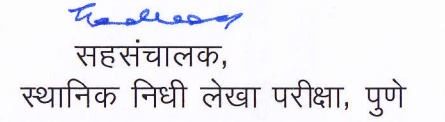 सहसंचालक,
स्थानिक निधी लेखा परीक्षा, पुणे